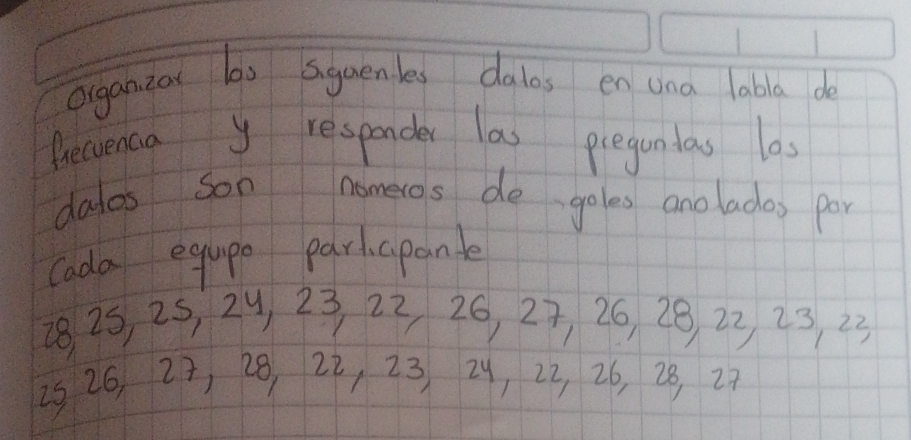 Organizar los siguentes datos en una tabla de
frecuencia y responder las preguntas los
datos son números de goles anotados por
cada equipo participante
28, 25, 25, 24, 23, 22, 26, 27, 26, 28, 22, 23, 22,
25, 26, 27, 28, 22, 23, 24, 22, 26, 28, 27